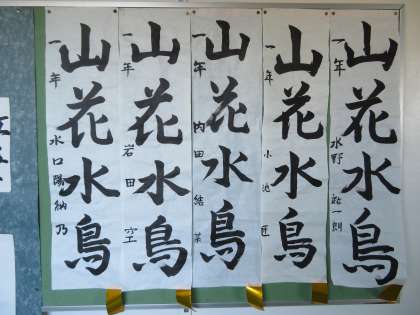 山花水鳥
一年 水野
山花水鳥
一年 小池 匠
山花水鳥
一年 内田 結菜
山花水鳥
一年 岩田 空
山花水鳥
一年 水口 陽納乃